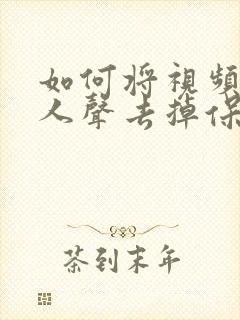 如何將視頻
人聲去掉保
茶到末年